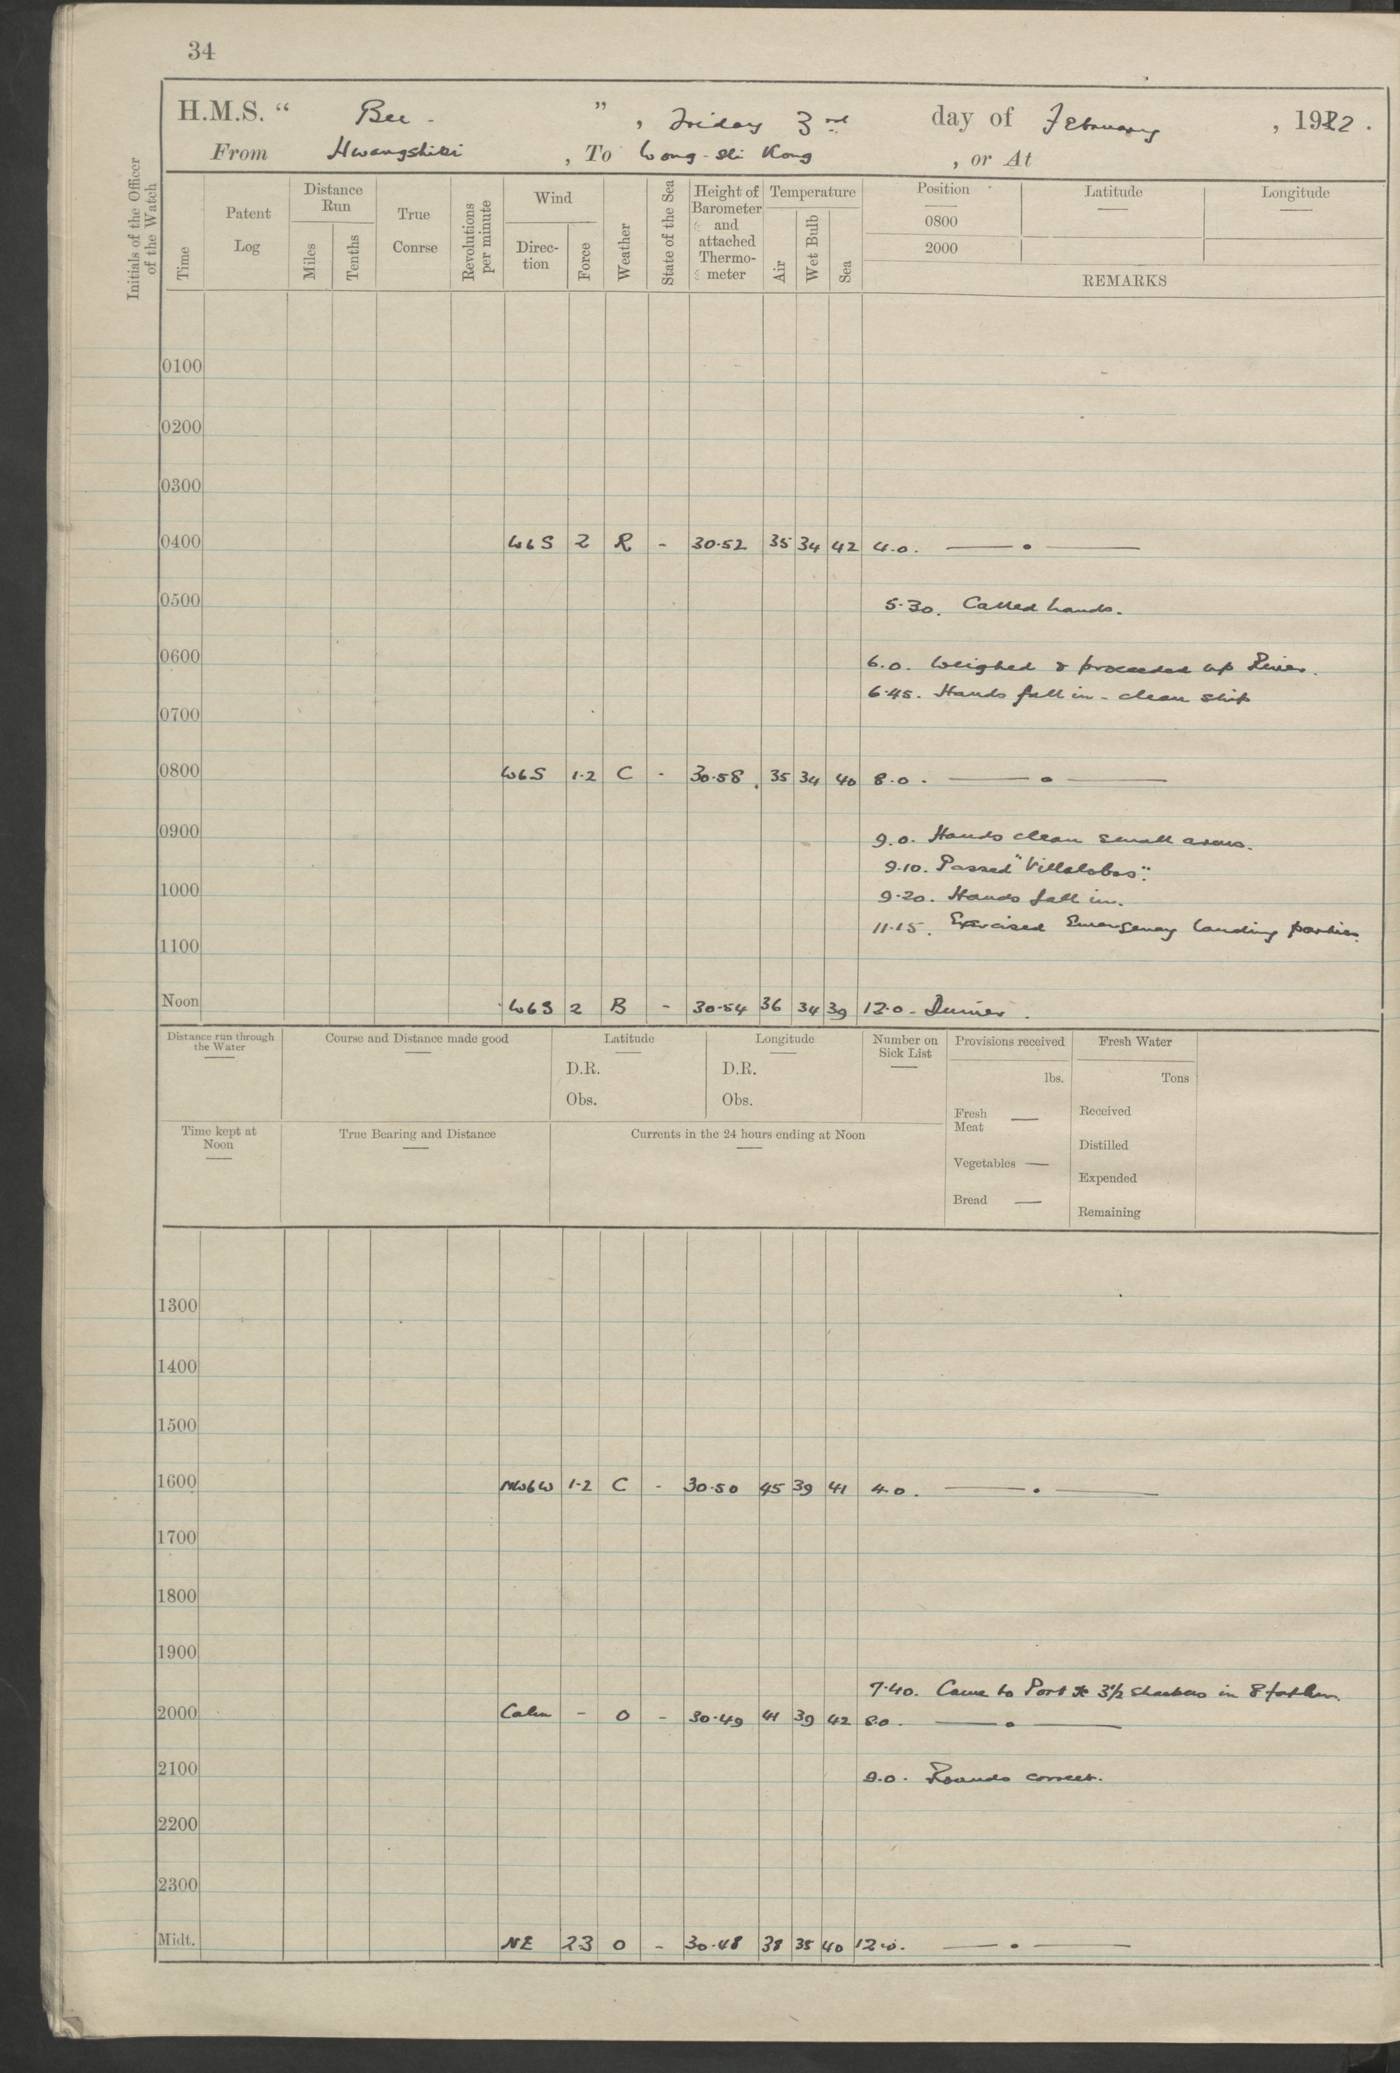 34
H.M.S. " Bee. ", Friday 3rd day of February, 1922.
From Hwangshihi, To Wong-shi Kong, or At
Initials of the Officer of the Watch
Time
Patent Log
Distance Run
Miles
Tenths
True Conrse
Revolutions per minute
Wind
Direc-tion
Force
Weather
State of the Sea
Height of Barometer and attached Thermo-meter
Temperature
Air
Wet Bulb
Sea
Position
Latitude
Longitude
0800
2000
REMARKS
0100
0200
0300
0400 WbS 2 R - 30.52 35 34 42 4.0. — . —
0500 5.30. Called hands.
0600 6.0. Weighed & proceeded up River.
6.45. Hands fall in - clean ship
0700
0800 WbS 1.2 C - 30.58 35 34 40 8.0. — . —
0900 9.0. Hands clean small arms.
9.10. Passed "Villalobos".
1000 9.20. Hands fall in.
11.15. Exercised Emergency landing parties.
1100
Noon WbS 2 B - 30.54 36 34 39 12.0. Dinner.
Distance run through the Water
Course and Distance made good
Latitude
D.R.
Obs.
Longitude
D.R.
Obs.
Number on Sick List
Provisions received
lbs.
Fresh Meat —
Vegetables —
Bread —
Fresh Water
Tons
Received
Distilled
Expended
Remaining
Time kept at Noon
True Bearing and Distance
Currents in the 24 hours ending at Noon
1300
1400
1500
1600 NWbW 1.2 C - 30.50 45 39 41 4.0. — . —
1700
1800
1900
7.40. Came to Port 3½ shackles in 8 fathom.
2000 Calm - O - 30.49 41 39 42 8.0. — . —
2100 9.0. Rounds correct.
2200
2300
Midt. NE 2.3 O - 30.48 38 35 40 12.0. — . —